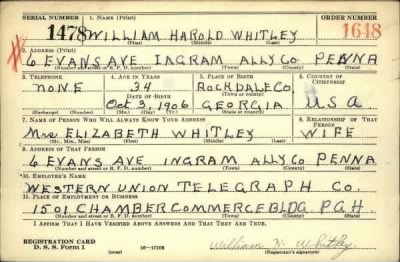 SERIAL NUMBER 1. NAME (Print) ORDER NUMBER
1478 WILLIAM HAROLD WHITLEY 1648
(First) (Middle) (Last)
2. ADDRESS (Print)
6 EVANS AVE INGRAM ALLY CO PENNA
(Number and street or R. F. D. number) (Town) (County) (State)
3. TELEPHONE 4. AGE IN YEARS 5. PLACE OF BIRTH 6. COUNTRY OF CITIZENSHIP
NONE 34 ROCKDALE CO.
DATE OF BIRTH (Town or county)
OCT 3, 1906 GEORGIA USA
(Exchange) (Number) (Mo.) (Day) (Yr.) (State or country)
7. NAME OF PERSON WHO WILL ALWAYS KNOW YOUR ADDRESS 8. RELATIONSHIP OF THAT PERSON
Mrs ELIZABETH WHITLEY WIFE
(Mr., Mrs., Miss) (First) (Middle) (Last)
9. ADDRESS OF THAT PERSON
6 EVANS AVE INGRAM ALLY CO PENNA
(Number and street or R. F. D. number) (Town) (County) (State)
10. EMPLOYER'S NAME
WESTERN UNION TELEGRAPH CO.
11. PLACE OF EMPLOYMENT OR BUSINESS
1501 CHAMBER COMMERCE BLDG. PGH.
(Number and street or R. F. D. number) (Town) (County) (State)
I AFFIRM THAT I HAVE VERIFIED ABOVE ANSWERS AND THAT THEY ARE TRUE.
REGISTRATION CARD
D. S. S. Form 1 16—17105 William H. Whitley
(Registrant's signature)